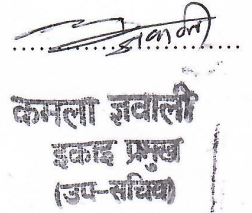 कमला ज्ञवाली
इकाइ प्रमुख
(उप-सचिव)